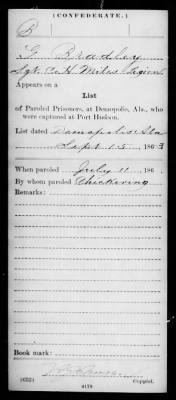 (CONFEDERATE.)
B
G Bradley
Sgt, Co H. Miles' Legion
Appears on a
List
of Paroled Prisoners, at Demopolis, Ala., who
were captured at Port Hudson.
List dated Demapolis Ala
Sept 15, 1863
When paroled July 11, 186
By whom paroled Chickering
Remarks:
Book mark:
(635)
Copyist.
4178